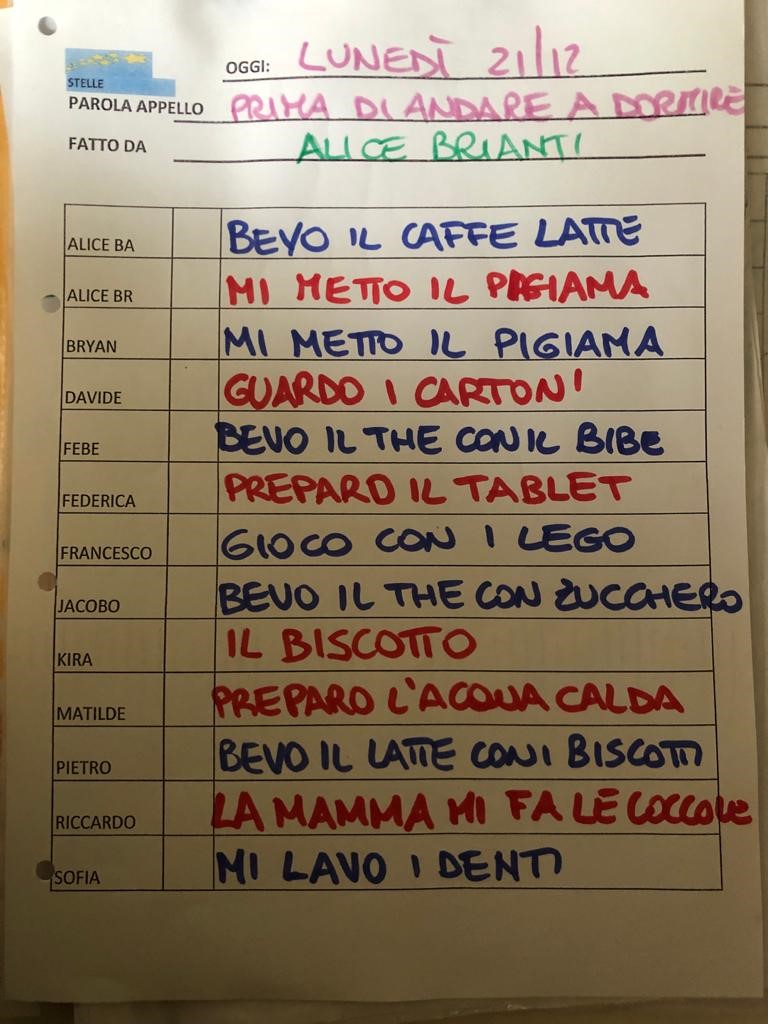 OGGI: LUNEDÌ 21/12
STELLE
PAROLA APPELLO PRIMA DI ANDARE A DORMIRE
FATTO DA ALICE BRIANTI
ALICE BA BEVO IL CAFFE LATTE
ALICE BR MI METTO IL PAGIAMA
BRYAN MI METTO IL PIGIAMA
DAVIDE GUARDO I CARTONI
FEBE BEVO IL THE CON IL BIBE
FEDERICA PREPARO IL TABLET
FRANCESCO GIOCO CON I LEGO
JACOBO BEVO IL THE CON ZUCCHERO
KIRA IL BISCOTTO
MATILDE PREPARO L'ACQUA CALDA
PIETRO BEVO IL LATTE CON I BISCOTTI
RICCARDO LA MAMMA MI FA LE COCCOLE
SOFIA MI LAVO I DENTI